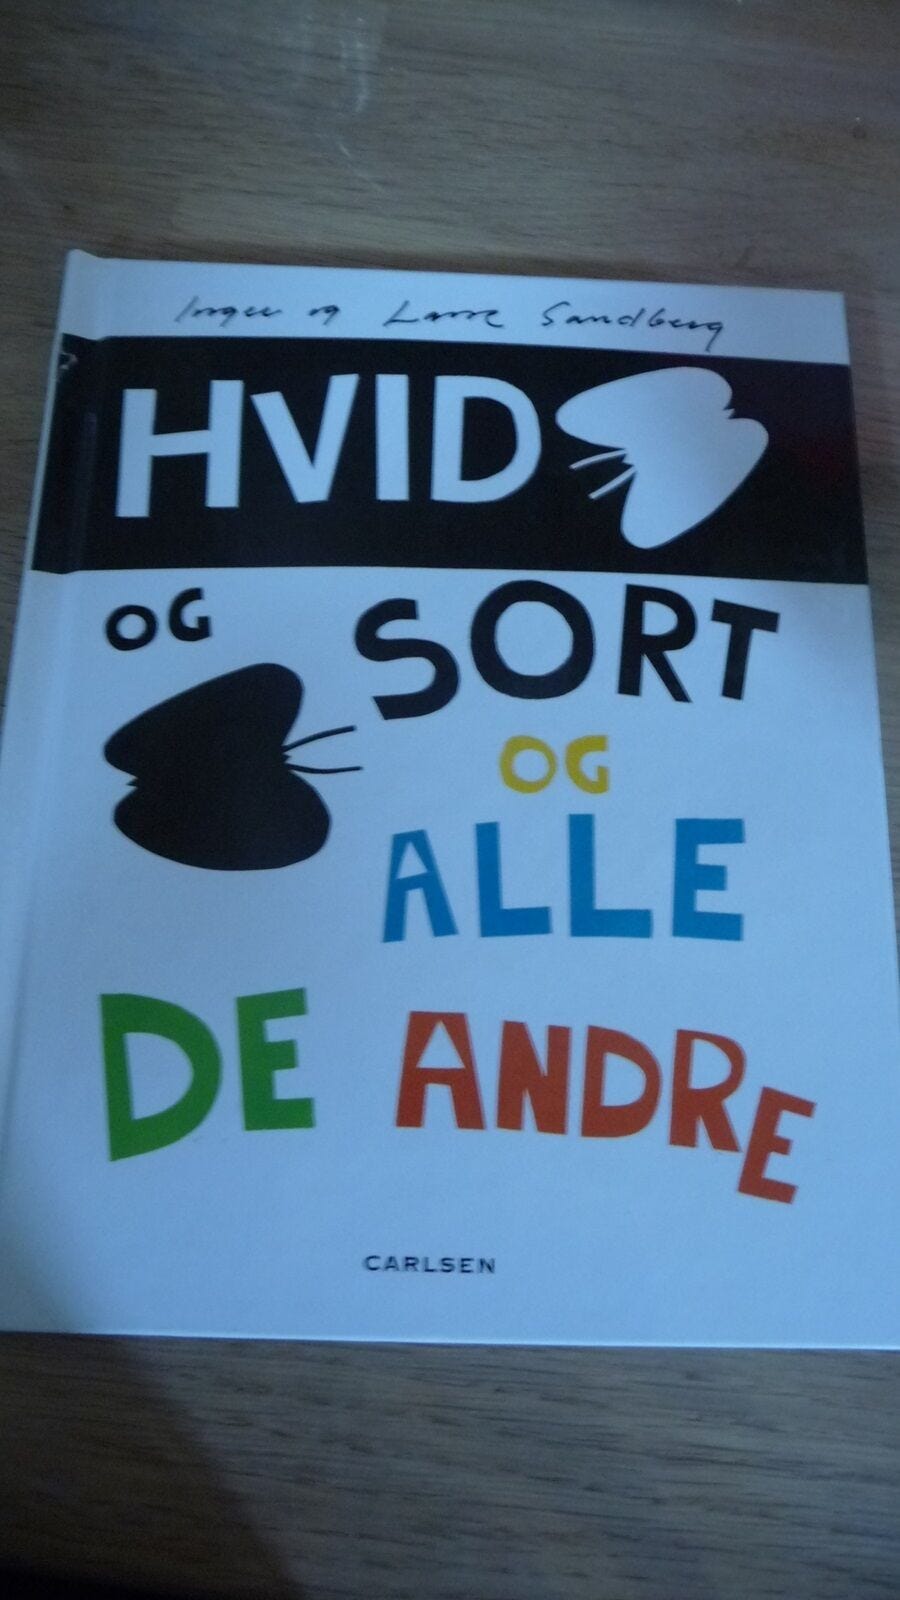 Inger og Lasse Sandberg
HVID
OG SORT
OG
ALLE
DE ANDRE
CARLSEN